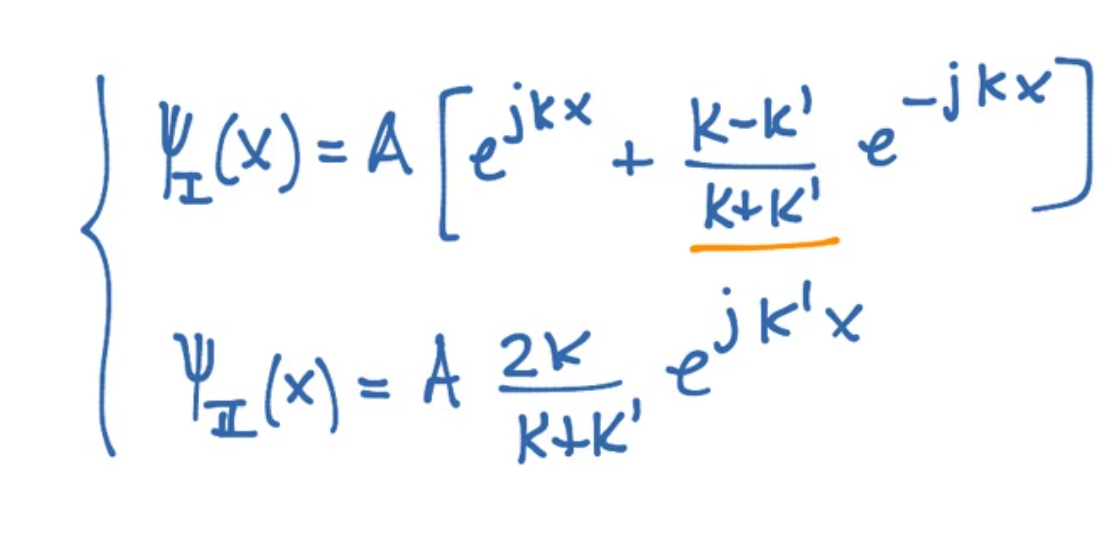 Ψ_I(x) = A [e^{jkx} + \frac{k-k'}{k+k'} e^{-jkx}]
Ψ_II(x) = A \frac{2k}{k+k'} e^{jk'x}